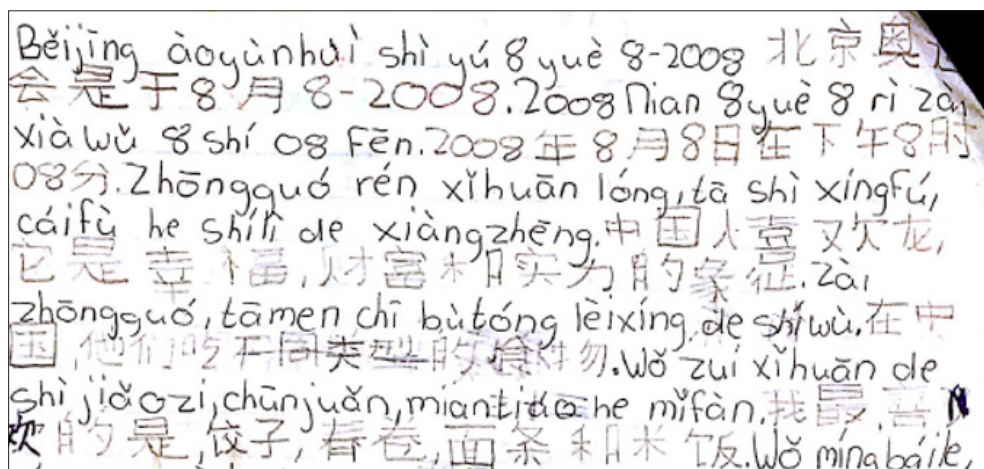 Běijīng àoyùnhuì shì yú 8 yuè 8-2008 北京奥运
会是于8月8-2008.2008 Nian 8yuè 8 rì zài
xiàwǔ 8 shí 08 Fēn.2008年8月8日在下午8时
08分.Zhōngguó rén xǐhuān lóng,tā shì xíngfú,
cáifù he shílì de xiàngzhēng.中国人喜欢龙,
它是幸福,财富和实力的象征.Zài
zhōngguó,tāmen chī bùtóng lèixíng de shíwù.在中
国,他们吃不同类型的食物.Wǒ zuì xǐhuān de
shì jiǎozi,chūnjuǎn,miantiáo he mǐfàn.我最喜
欢的是,饺子,春卷,面条和米饭.Wǒ míngbáile,